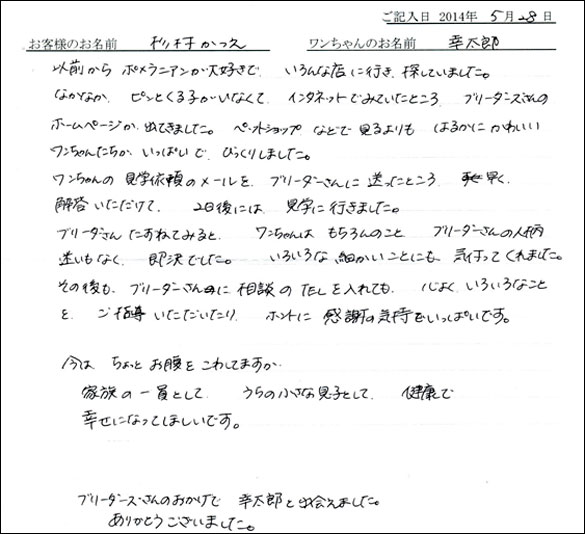 ご記入日 2014年 5月 28日
お客様のお名前 杉村かつ久 ワンちゃんのお名前 幸太郎
以前から ポメラニアンが大好きで、 いろんな店に行き、探していました。
なかなか ピンとくる子がいなくて、 インターネットでみていたところ、 ブリーダーズさんの
ホームページが、出てきました。 ペットショップ などで見るよりも はるかにかわいい
ワンちゃんたちが、いっぱいで、 びっくりしました。
ワンちゃんの 見学依頼のメールを、ブリーダーさんに 送ったところ、 早く、
解答いただけて、 2日後には 見学に行きました。
ブリーダーさん たずねてみると、 ワンちゃんは もちろんのこと ブリーダーさんの人柄
迷いもなく、 即決でした。 いろいろな 細かいことにも 気付ってくれました。
その後も、ブリーダーさんに 相談の TELを入れても、 心よく、いろいろなこと
を、 ご指導 いただいたり、 ホントに 感謝の気持でいっぱいです。
今は ちょっと お腹を こわしてますが、
家族の一員として、 うちの小さな息子として、 健康で
幸せになってほしいです。
ブリーダーズさんのおかげで 幸太郎と出会えました。
ありがとうございました。